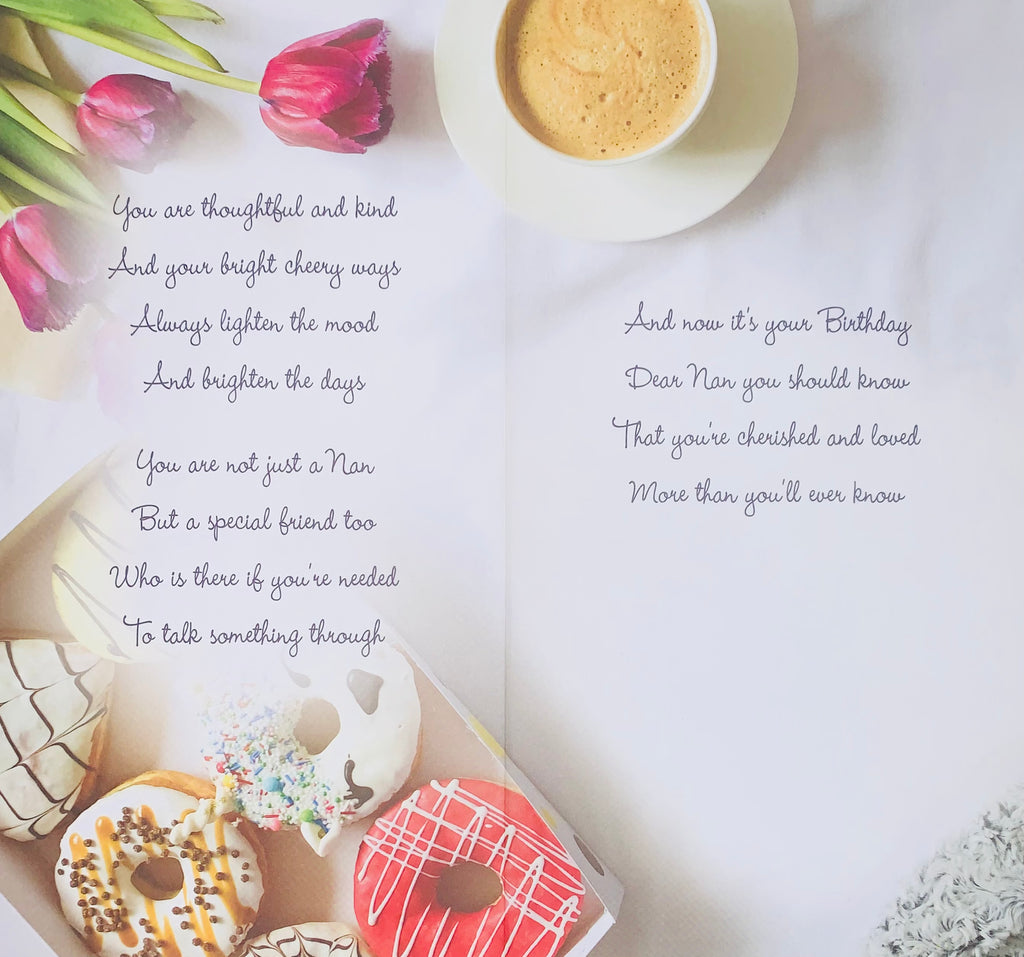 You are thoughtful and kind
And your bright cheery ways
Always lighten the mood
And brighten the days
You are not just a Nan
But a special friend too
Who is there if you're needed
To talk something through
And now it's your Birthday
Dear Nan you should know
That you're cherished and loved
More than you'll ever know